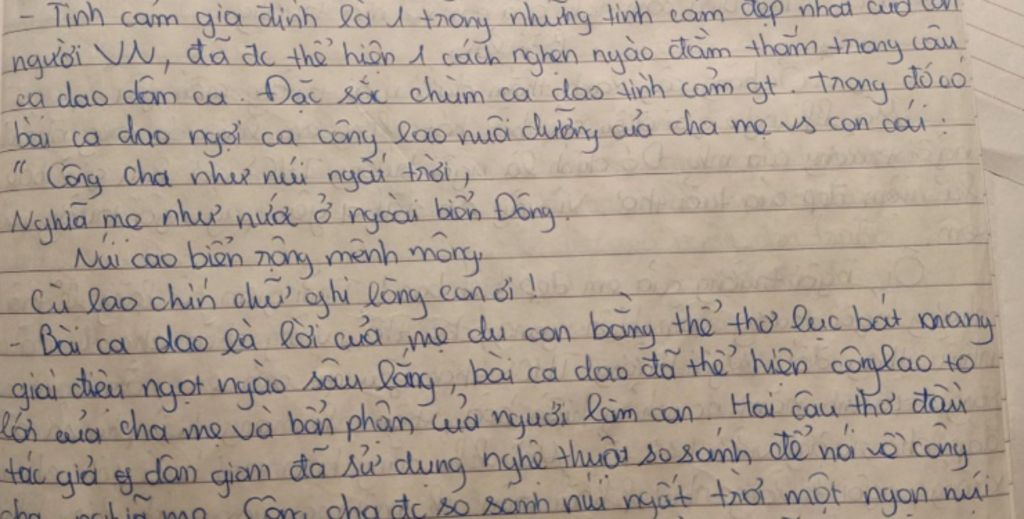 - Tình cảm gia đình là 1 trong những tình cảm đẹp nhất của con
người VN, đã đc thể hiện 1 cách nghẹn ngào đằm thắm trong câu
ca dao dân ca. Đặc sắc chùm ca dao tình cảm gt. Trong đó có
bài ca dao ngợi ca công lao nuôi dưỡng của cha mẹ vs con cái:
" Công cha như núi ngất trời,
Nghĩa mẹ như nước ở ngoài biển Đông.
Núi cao biển rộng mênh mông,
Cù lao chín chữ ghi lòng con ơi!
- Bài ca dao là lời của mẹ du con bằng thể thơ lục bát mang
giai điệu ngọt ngào sâu lắng, bài ca dao đã thể hiện công lao to
lớn của cha mẹ và bổn phận của người làm con. Hai câu thơ đầu
tác giả dân gian đã sử dụng nghệ thuật so sánh để nói về công
cha nghĩa mẹ. Công cha đc so sánh núi ngất trời một ngọn núi